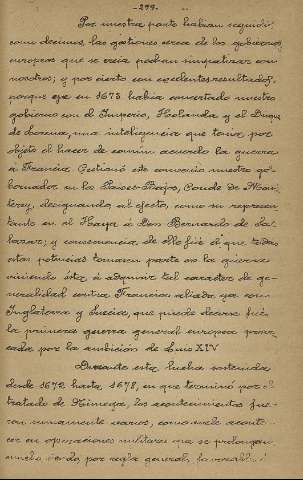 -299-
Por nuestra parte habian seguido
como decimos, las gestiones cerca de los gobiernos
europeos que se creia podian simpatizar con
nosotros; y por cierto con excelentes resultados,
porque que en 1673 habia concertado nuestro
gobierno con el Imperio, Holanda y el Duque
de Lorena, una inteligencia que tenia por
objeto el hacer de comun acuerdo la guerra
a Francia. Gestionó este convenio nuestro go-
bernador en los Paises-Bajos, Conde de Mon-
terey, designando, al efecto, como su represen-
tante en el Haya á Don Bernardo de Sa-
lazar; y consecuencia de ello fué el que todas
estas potencias tomaran parte en la guerra
viniendo ésta á adquirir tal caracter de ge-
neralidad contra Francia aliada ya con
Inglaterra y Suecia, que puede decirse fué
la primera guerra general europea provo-
cada por la ambición de Luis XIV
Durante esta lucha sostenida
desde 1672 hasta 1678, en que terminó por el
tratado de Nimega, los acontecimientos fue-
ron sumamente varios, como suele aconte-
cer en operaciones militares que se prolongan
siendo, por regla general,